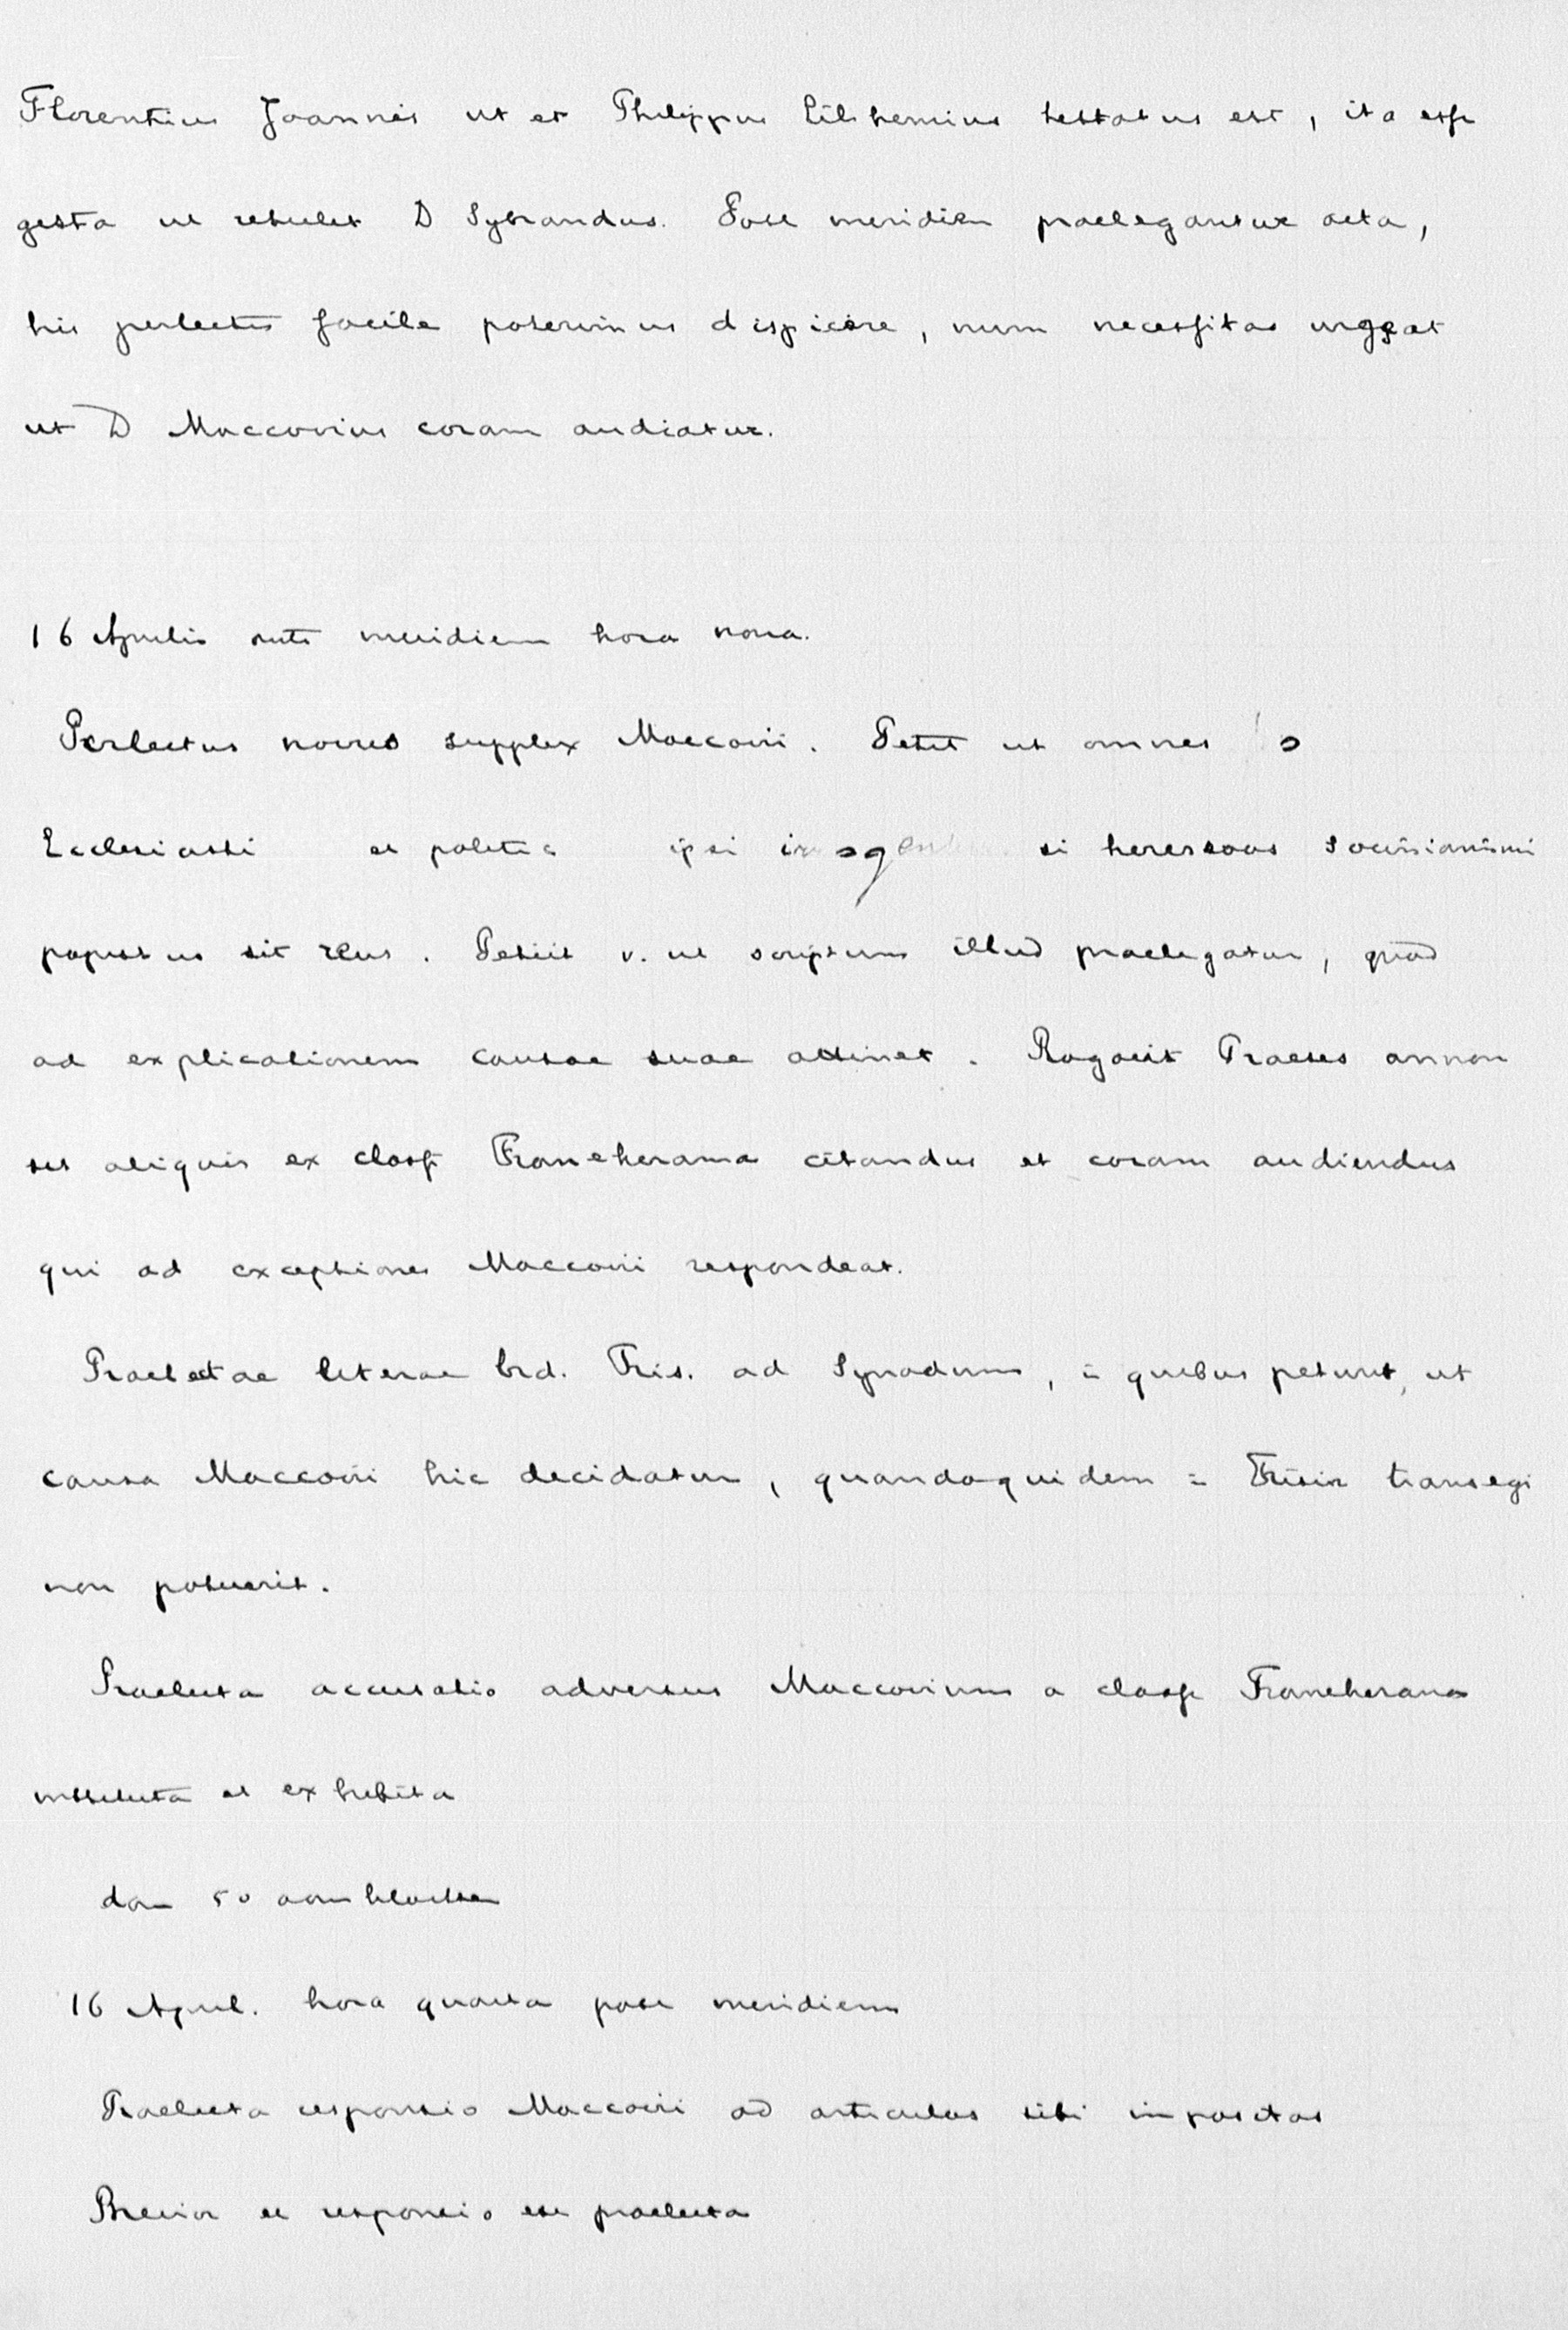 Florentius Joannis ut et Philippus Eilshemius testatus est, ita esse
gesta ut retulet D Sybrandus. Post meridiem praelegantur acta,
his perlectis facile poterimus dispicere, num necessitas urgeat
ut D Maccovius coram audiatur.
16 Aprilis ante meridiem hora nona.
Perlectus novus supplex Maccovii. Petit ut omnes
Ecclesiasti et politic ipsi si hereseos Socinianismi
sit reus. Petiit v. ut scriptum illud praelegatur, quod
ad explicationem causae suae attinet. Rogavit Praeses annon
sit aliquis ex classe Franekerana citandus et coram audiendus
qui ad exceptiones Maccovii respondeat.
Praelectae literae Ord. Fris. ad Synodum, in quibus petunt, ut
causa Maccovii hic decidatur, quandoquidem in Frisia transegi
non potuerit.
Praelecta accusatio adversus Maccovium a classe Franekerana
instituta et exhibita
dan 50 aan
16 April. hora quarta post meridiem
Praelecta responsio Maccovii ad articulos sibi impositos
Brevior et responsio est praelecta